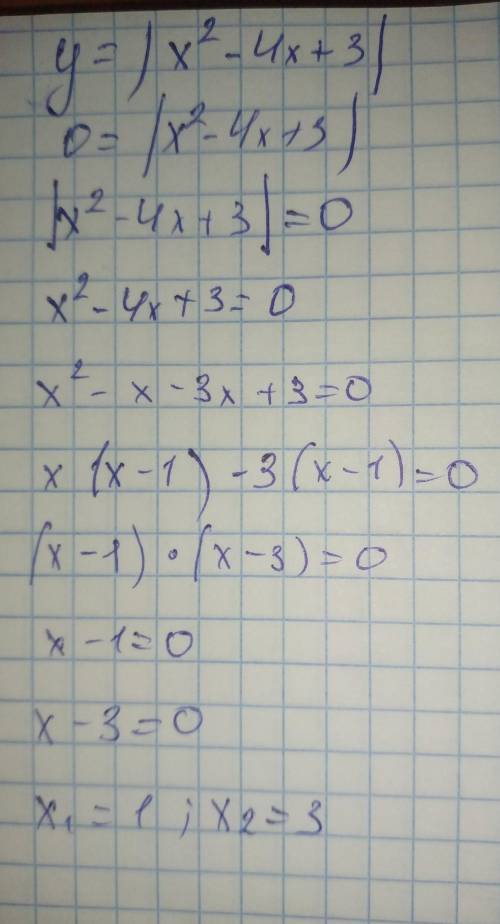 y = |x² - 4x + 3|
0 = |x² - 4x + 3|
|x² - 4x + 3| = 0
x² - 4x + 3 = 0
x² - x - 3x + 3 = 0
x (x - 1) - 3 (x - 1) = 0
(x - 1) · (x - 3) = 0
x - 1 = 0
x - 3 = 0
x₁ = 1 ; x₂ = 3